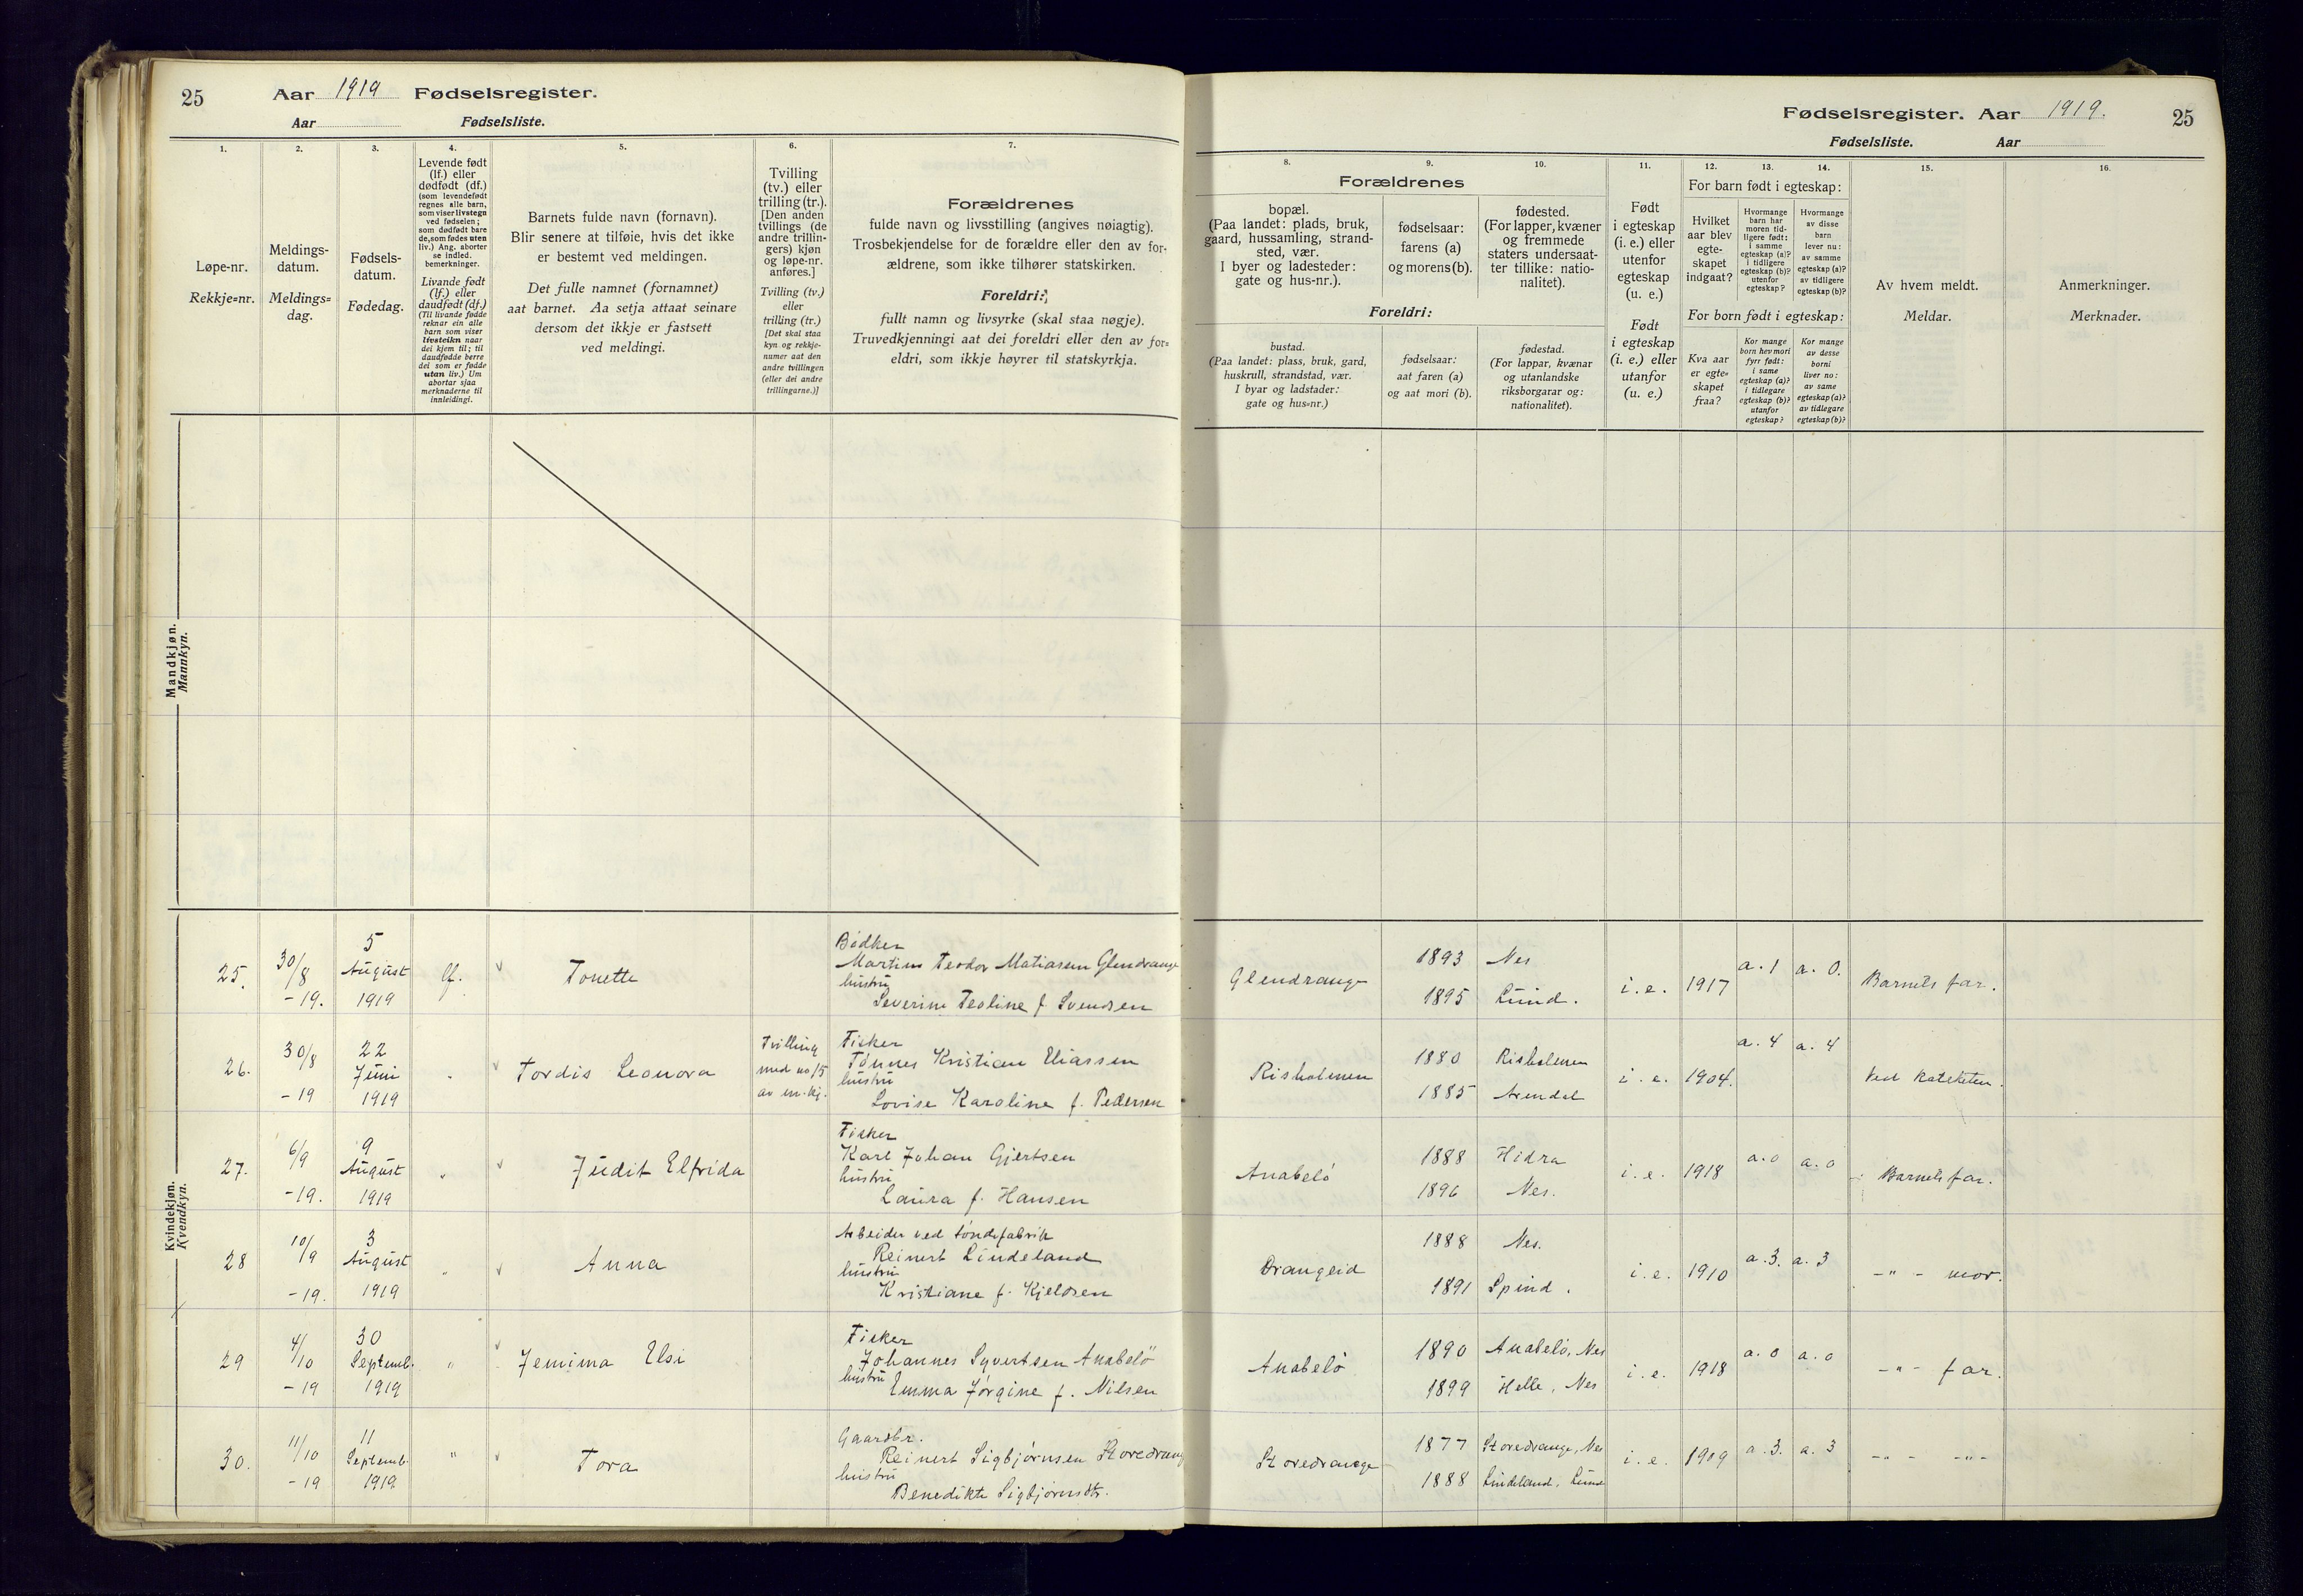 25 Aar 1919 Fødselsregister.
Aar Fødselsliste.
1. 2. 3. 4. 5. 6. 7.
Løpe-nr.
Rekkje=nr.
Meldings-
datum.
Meldings=
dag.
Fødsels-
datum.
Fødedag.
Levende født
(lf.) eller
dødfødt (df.)
(som levendefødt
regnes alle barn,
som viser livstegn
ved fødselen;
som dødfødt bare
de, som fødes uten
liv.) Ang. aborter
se indled.
bemerkninger.
Livande født
(lf.) eller
daudfødt (df.)
(Til livande fødde
reknar ein alle
barn som viser
livsteikn naar
dei kjem til; til
daudfødde berre
dei som er fødde
utan liv.) Um
abortar sjaa
merknaderne til
innleidingi.
Barnets fulde navn (fornavn).
Blir senere at tilføie, hvis det ikke
er bestemt ved meldingen.
Det fulle namnet (fornamnet)
aat barnet. Aa setja attaat seinare
dersom det ikkje er fastsett
ved meldingi.
Tvilling
(tv.) eller
trilling (tr.).
[Den anden
tvillings (de
andre trillin-
gers) kjøn
og løpe-nr.
anføres.]
Tvilling (tv.)
eller
trilling (tr.)
[Det skal staa
kyn og rekkje-
numer aat den
andre tvillingen
(eller dei andre
trillingarne.)]
Forældrenes
fulde navn og livsstilling (angives nøiagtig).
Trosbekjendelse for de forældre eller den av for-
ældrene, som ikke tilhører statskirken.
Foreldri:
fullt namn og livsyrke (skal staa nøgje).
Truvedkjenningi aat dei foreldri eller den av for=
eldri, som ikkje høyrer til statskyrkja.
Mandkjøn.
Mannkyn.
Kvindekjøn.
Kvendkyn.
25.
30/8
-19.
5
August
1919
lf.
Tonette
Bødker
Martin Teodor Matiasen Glendrange
hustru
Severine Teoline f Svendsen
26.
30/8
-19
22
Juni
1919
"
Tordis Leonora
Tvilling
med no 15
av m.kj.
Fisker
Tønnes Kristian Eliassen
hustru
Lovise Karoline f. Pedersen
27.
6/9
-19.
9
August
1919
"
Judit Elfrida
Fisker
Karl Johan Gjertsen
hustru
Laura f. Hansen
28
10/9
-19.
3
August
1919
"
Anna
Arbeider ved tøndefabrik
Reinert Lindeland
hustru
Kristiane f. Kjeldsen
29
4/10
-19
30
Septemb.
1919
"
Jemima Elsi
Fisker
Johannes Syvertsen Anabelö
hustru
Emma Jørgine f. Nilsen
30.
11/10
-19
11
Septemb.
1919
"
Tora
Gaardbr.
Reinert Sigbjørnsen Storedrang
hustru
Benedikte Sigbjørnsdtr.
Fødselsregister. Aar 1919. 25
Fødselsliste. Aar
8. 9. 10. 11. 12. 13. 14. 15. 16.
Forældrenes
bopæl.
(Paa landet: plads, bruk,
gaard, hussamling, strand-
sted, vær.
I byer og ladesteder:
gate og hus-nr.).
fødselsaar:
farens (a)
og morens (b).
fødested.
(For lapper, kvæner
og fremmede
staters undersaat-
ter tillike: natio-
nalitet).
Foreldri:
bustad.
(Paa landet: plass, bruk, gard,
huskrull, strandstad, vær.
I byar og ladstader:
gate og hus=nr.)
fødselsaar:
aat faren (a)
og aat mori (b).
fødestad.
(For lappar, kvænar
og utanlandske
riksborgarar og:
nationalitet).
Født
i egteskap
(i. e.) eller
utenfor
egteskap
(u. e.)
Født
i egteskap
(i. e.) eller
utanfor
(u. e.)
For barn født i egteskap:
Hvilket
aar blev
egte-
skapet
indgaat?
Hvormange
barn har
moren tid-
ligere født:
i samme
egteskap (a)?
i tidligere
egteskap (b)?
utenfor
egteskap?
Hvormange
av disse
barn
lever nu:
av samme
egteskap (a)?
av tidligere
egteskap (b)?
For born født i egteskap:
Kva aar
er egte=
skapet
fraa?
Kor mange
born hev mori
fyrr født:
i same
egteskap (a)?
i tidlegare
egteskap (b)?
utanfor
egteskap?
Kor mange
av desse
borni
liver no:
av same
egteskap (a)?
av tidlegare
egteskap (b)?
Av hvem meldt.
Meldar.
Anmerkninger.
Merknader.
Glendrange
1893 Nes
1895 Lund.
i. e. 1917 a. 1 a. 0. Barnets far.
Risholmen
1880 Risholmen
1885 Arendal
i. e. 1904. a. 4 a. 4 Ved kateketen.
Anabelö
1888 Hidra
1896 Nes.
i. e. 1918 a. 0 a. 0 Barnets far.
Drangeid
1888 Nes.
1891 Spind.
i. e. 1910 a. 3. a. 3 -"- mor.
Anabelö
1890 Anabelö, Nes
1899 Helle, Nes
i. e. 1918 a. 0 a. 0 -"- far.
Storedrange
1877 Storedrange, Nes
1888 Lindeland, Lund
i. e. 1909 a. 3. a. 3 -"- -"-